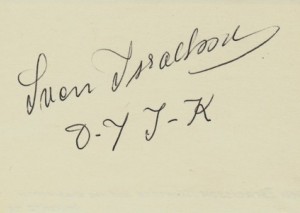 Sven Israelsson
D-7 J-K